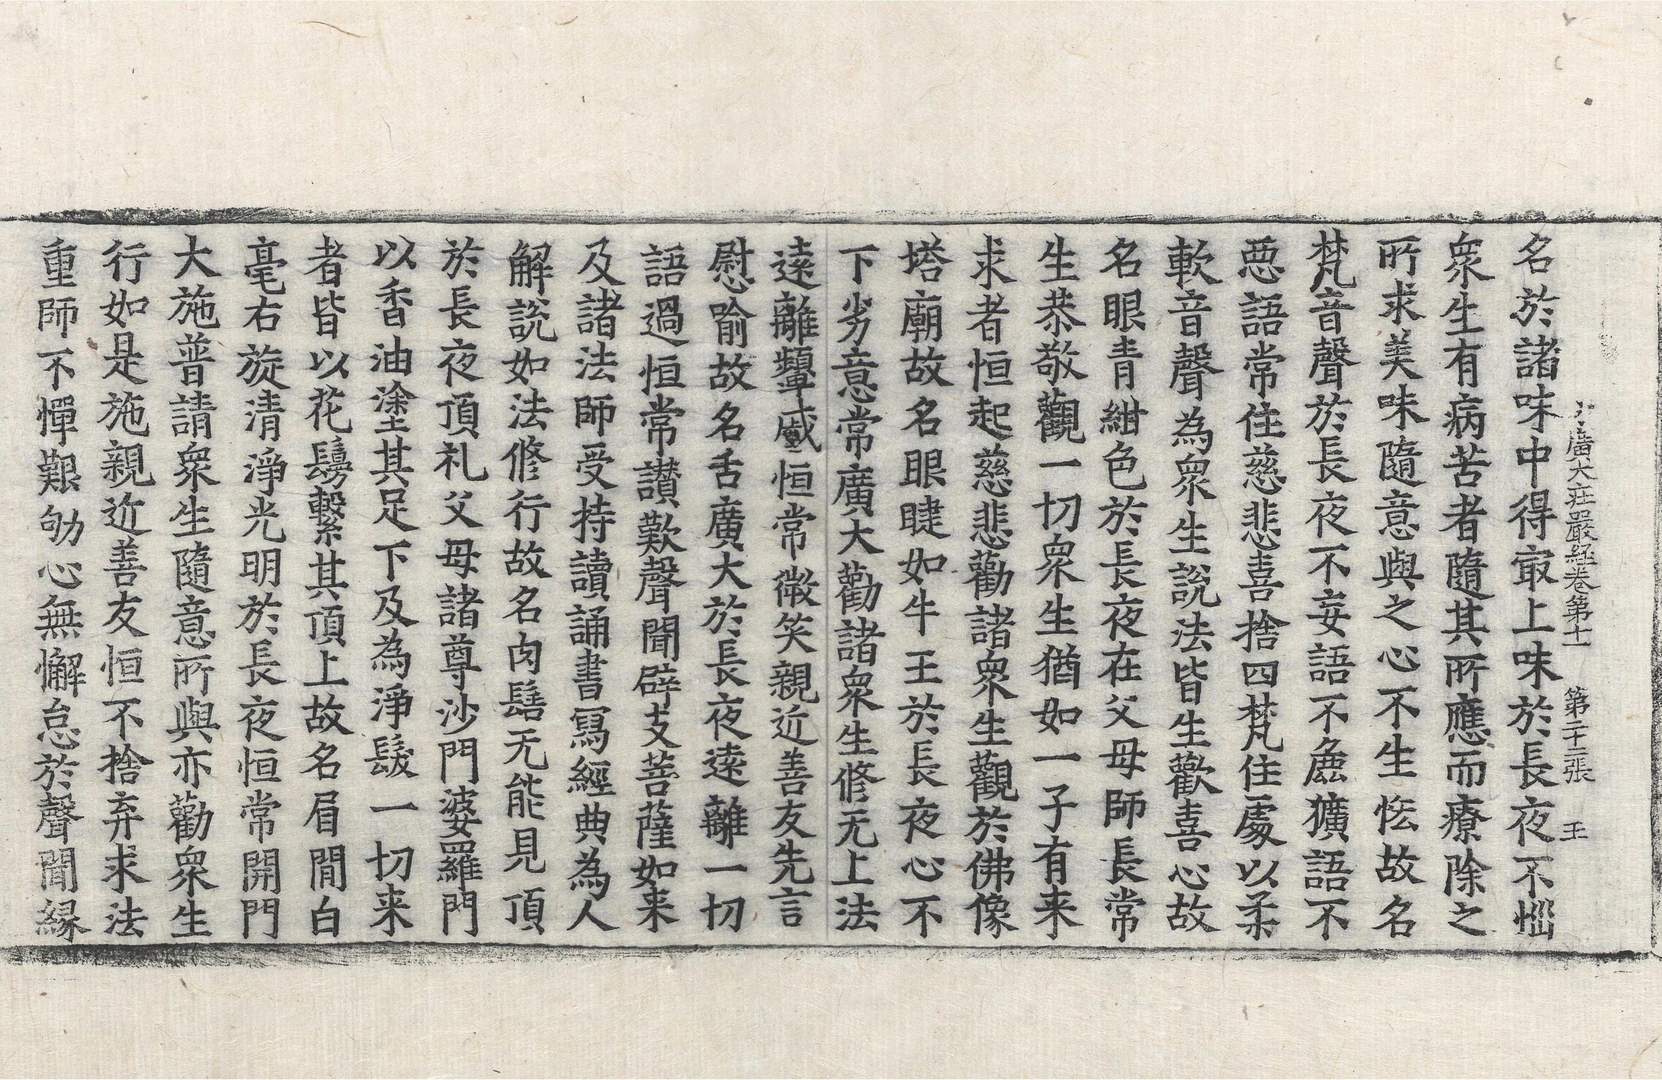 方廣大莊嚴経卷第十一 第二十二張 王
名於諸味中得㝡上味於長夜不惱
衆生有病苦者隨其所應而療除之
所求美味隨意與之心不生恡故名
梵音聲於長夜不妄語不麁獷語不
惡語常住慈悲喜捨四梵住處以柔
軟音聲為衆生說法皆生歡喜心故
名眼青紺色於長夜在父母師長常
生恭敬觀一切衆生猶如一子有来
求者恒起慈悲勸諸衆生觀於佛像
塔廟故名眼睫如牛王於長夜心不
下劣意常廣大勸諸衆生修无上法
遠離顰蹙恒常微笑親近善友先言
慰喻故名舌廣大於長夜遠離一切
語過恒常讃歎聲聞辟支菩薩如来
及諸法師受持讀誦書寫經典為人
解說如法修行故名肉髻无能見頂
於長夜頂礼父母諸尊沙門婆羅門
以香油塗其足下及為淨髮一切来
者皆以花鬘繫其頂上故名眉間白
毫右旋清淨光明於長夜恒常開門
大施普請衆生隨意所與亦勸衆生
行如是施親近善友恒不捨弃求法
重師不憚艱劬心無懈怠於聲聞縁